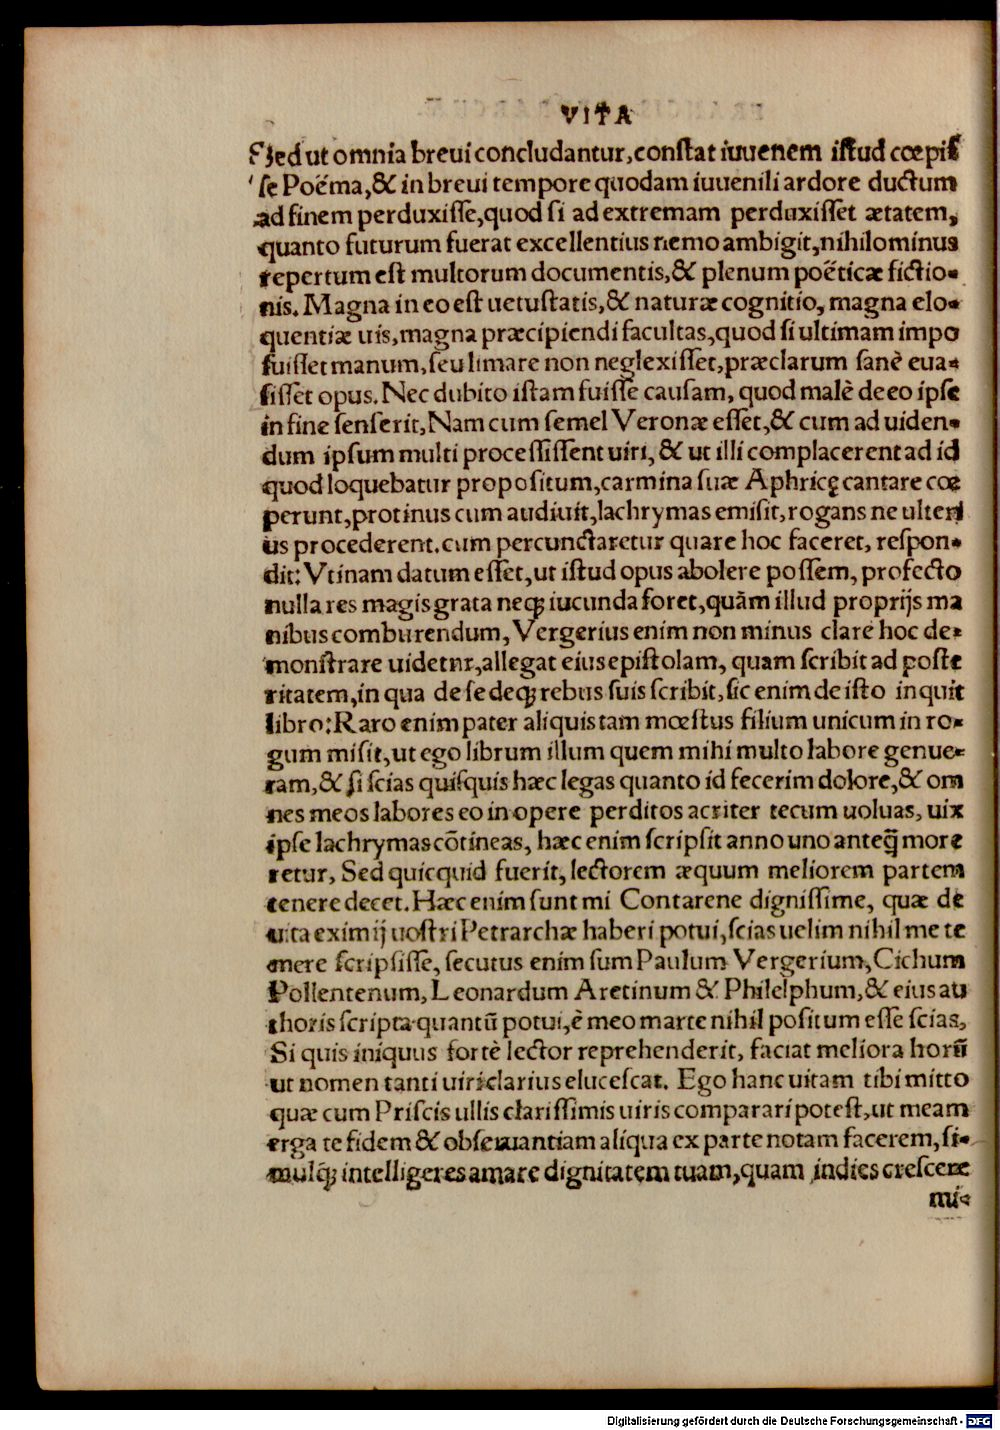 VITA
Sed ut omnia brevi concludantur, constat iuuenem istud cœpiſ
ſe Poëma, & in brevi tempore quodam iuuenili ardore ductum
ad finem perduxiſſe, quod ſi ad extremam perduxiſſet ætatem,
quanto futurum fuerat excellentius nemo ambigit, nihilominus
repertum eſt multorum documentis, & plenum poëticæ fictio-
nis. Magna in eo eſt uetuſtatis, & naturæ cognitio, magna elo-
quentiæ uis, magna præcipiendi facultas, quod ſi ultimam impo
ſuiſſet manum, ſeu limare non neglexiſſet, præclarum ſanè eua-
ſiſſet opus. Nec dubito iſtam fuiſſe cauſam, quod malè de eo ipſe
in fine ſenſerit, Nam cum ſemel Veronæ eſſet, & cum ad uiden-
dum ipſum multi proceſſiſſent uiri, & ut illi complacerent ad id
quod loquebatur propoſitum, carmina ſuæ Aphricę cantare cœ
perunt, protinus cum audiuit, lachrymas emiſit, rogans ne ulteri
us procederent. cum percunctaretur quare hoc faceret, reſpon-
dit: Vtinam datum eſſet, ut iſtud opus abolere poſſem, profecto
nulla res magis grata neqꝫ iucunda foret, quãm illud proprijs ma
nibus comburendum, Vergerius enim non minus clare hoc de-
monſtrare uidetur, allegat eius epiſtolam, quam ſcribit ad poſte
ritatem, in qua de ſe deqꝫ rebus suis ſcribit, ſic enim de iſto inquit
libro: Raro enim pater aliquis tam mœſtus filium unicum in ro-
gum miſit, ut ego librum illum quem mihi multo labore genue-
ram, & ſi ſcias quiſquis hæc legas quanto id fecerim dolore, & om
nes meos labores eo in opere perditos acriter tecum uoluas, uix
ipſe lachrymas cõtineas, hæc enim ſcripſit anno uno anteq̃ more
retur, Sed quicquid fuerit, lectorem æquum meliorem partem
tenere decet. Hæc enim ſunt mi Contarene digniſſime, quæ de
uita eximij uoſtri Petrarchæ haberi potui, ſcias uelim nihil me te
mere ſcripſiſſe, ſecutus enim ſum Paulum Vergerium, Cichum
Pollentenum, Leonardum Aretinum & Philelphum, & eius au
thoris ſcripta quantũ potui, è meo marte nihil poſitum eſſe ſcias,
Si quis iniquus fortè lector reprehenderit, faciat meliora horũ
ut nomen tanti uiri clarius eluceſcat. Ego hanc uitam tibi mitto
quæ cum Priſcis ullis clariſſimis uiris comparari poteſt, ut meam
erga te fidem & obſeruantiam aliqua ex parte notam facerem, ſi-
mulqꝫ intelligeres amare dignitatem tuam, quam indies creſcere
mi-
Digitalisierung gefördert durch die Deutsche Forschungsgemeinschaft - DFG